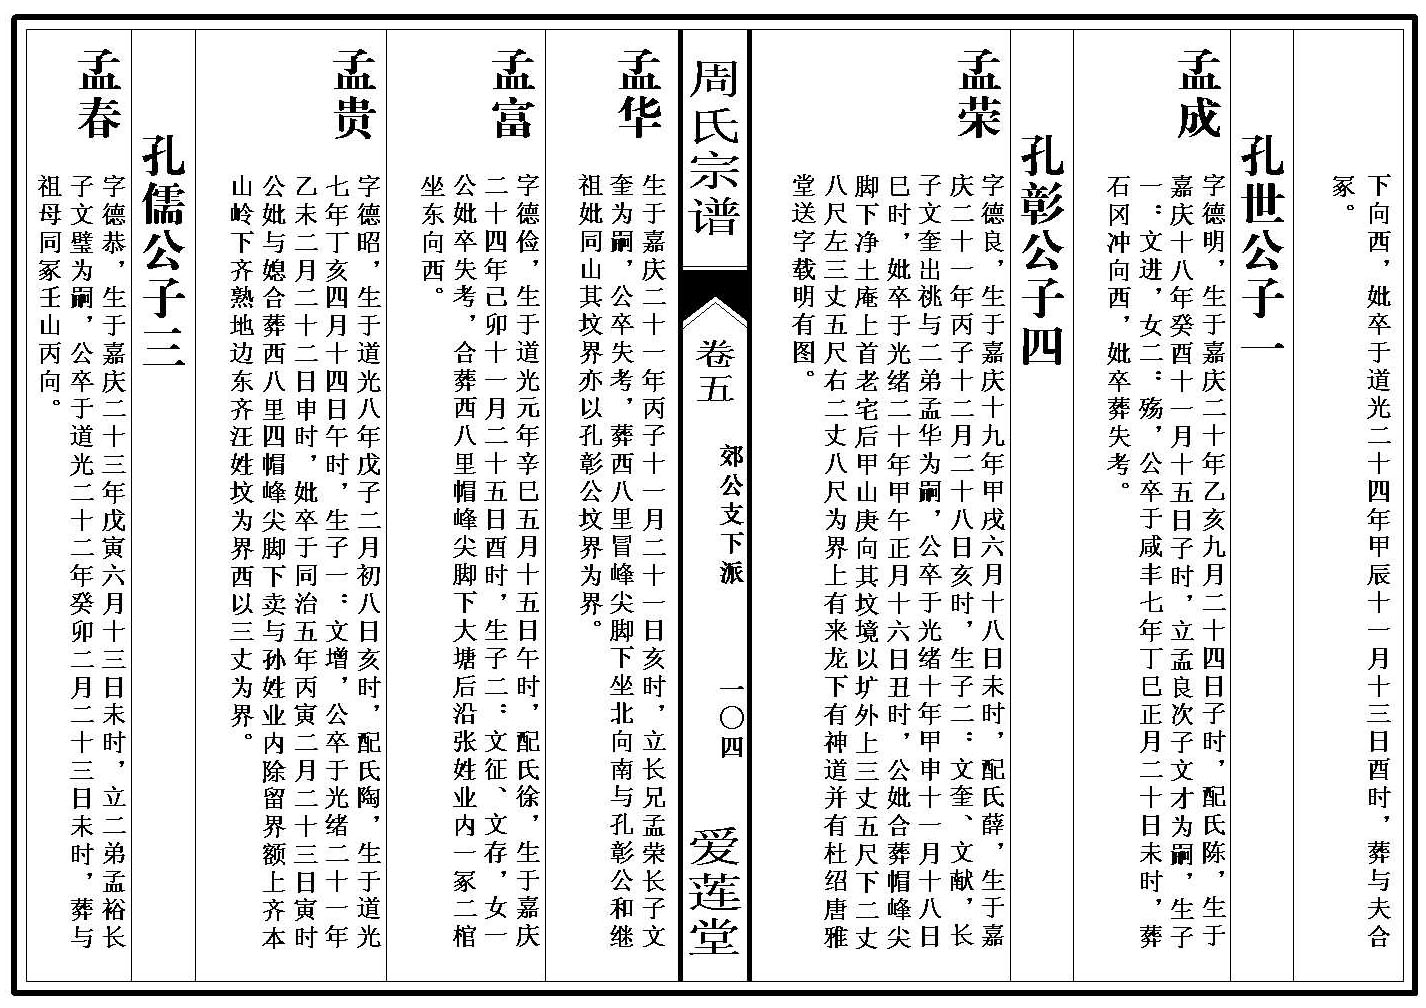 下向西，妣卒于道光二十四年甲辰十一月十三日酉时，葬与夫合
冢。
孔世公子一
孟成
字德明，生于嘉庆二十年乙亥九月二十四日子时，配氏陈，生于
嘉庆十八年癸酉十一月十五日子时，立孟良次子文才为嗣，生子
一：文进，女二：殇，公卒于咸丰七年丁巳正月二十日未时，葬
石冈冲向西，妣卒葬失考。
孔彰公子四
孟荣
字德良，生于嘉庆十九年甲戌六月十八日未时，配氏薛，生于嘉
庆二十一年丙子十二月二十八日亥时，生子二：文奎、文献，长
子文奎出祧与二弟孟华为嗣，公卒于光绪十年甲申十一月十八日
巳时，妣卒于光绪二十年甲午正月十六日丑时，公妣合葬帽峰尖
脚下净土庵上首老宅后甲山庚向其坟境以圹外上三丈五尺下二丈
八尺左三丈五尺右二丈八尺为界上有来龙下有神道并有杜绍唐雅
堂送字载明有图。
周氏宗谱
卷五
郊公支下派
一〇四
爱莲堂
孟华
生于嘉庆二十一年丙子十一月二十一日亥时，立长兄孟荣长子文
奎为嗣，公卒失考，葬西八里冒峰尖脚下坐北向南与孔彰公和继
祖妣同山其坟界亦以孔彰公坟界为界。
孟富
字德俭，生于道光元年辛巳五月十五日午时，配氏徐，生于嘉庆
二十四年己卯十一月二十五日酉时，生子二：文征、文存，女一
公妣卒失考，合葬西八里帽峰尖脚下大塘后沿张姓业内一冢二棺
坐东向西。
孟贵
字德昭，生于道光八年戊子二月初八日亥时，配氏陶，生于道光
七年丁亥四月十四日午时，生子一：文增，公卒于光绪二十一年
乙未二月二十二日申时，妣卒于同治五年丙寅二月二十三日寅时
公妣与媳合葬西八里四帽峰尖脚下卖与孙姓业内除留界额上齐本
山岭下齐熟地边东齐汪姓坟为界西以三丈为界。
孔儒公子三
孟春
字德恭，生于嘉庆二十三年戊寅六月十三日未时，立二弟孟裕长
子文璧为嗣，公卒于道光二十二年癸卯二月二十三日未时，葬与
祖母同冢壬山丙向。